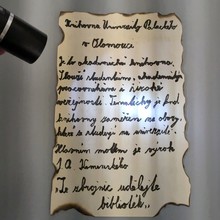 Knihovna Univerzity Palackého
v Olomouci
Je to akademická knihovna.
Slouží studentům, akademickým
pracovníkům i široké
veřejnosti. Tematicky je fond
knihovny zaměřen na obory,
které se studují na univerzitě.
Hlavním mottem je výrok
J. A. Komenského
"Ze zbrojnic udělejte
biblioték".